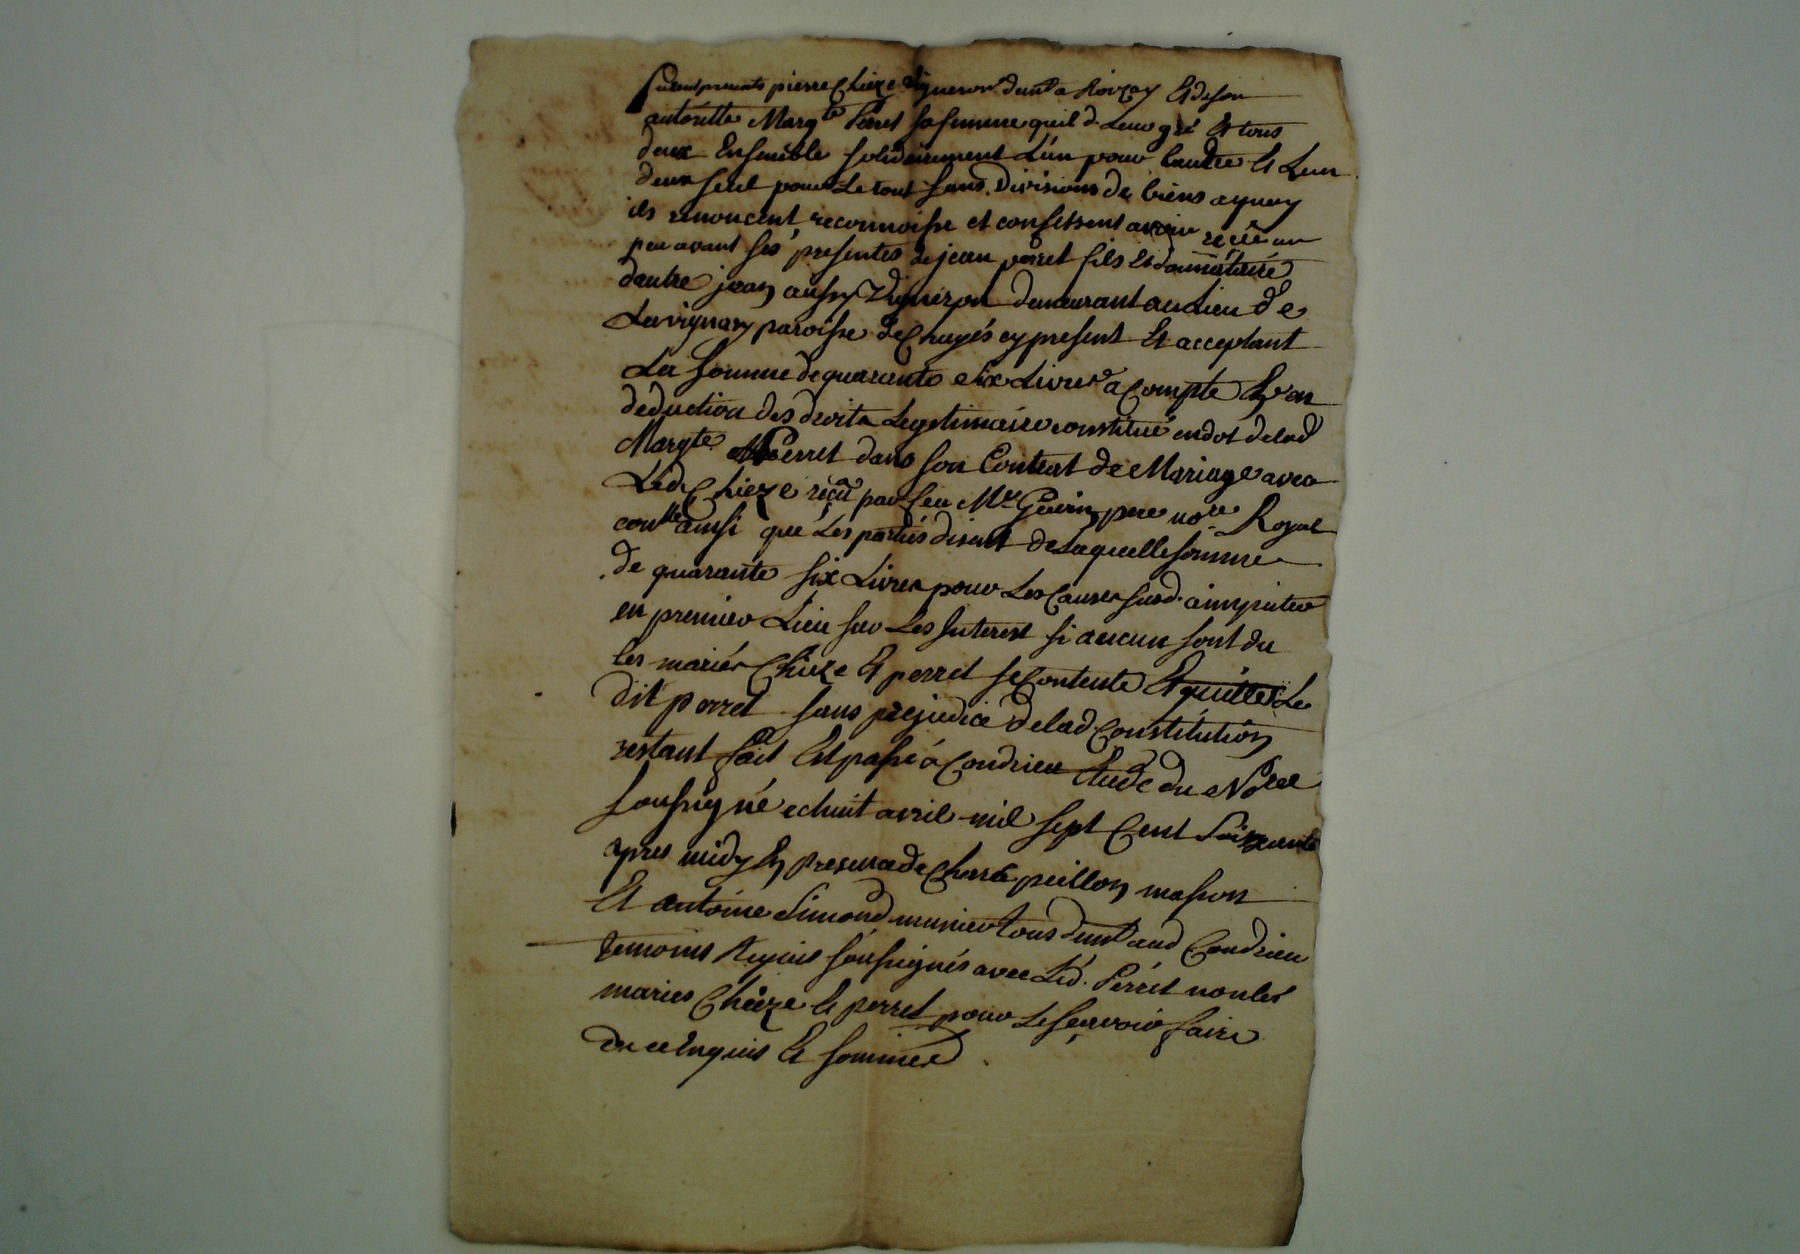 furent presents pierre Chieze Vigneron demt a Roizey Et de son
autoritte Margte Perret sa femme quil d. Leur gré Et tous
deux Ensemble solidairement L'un pour Lautre Et Lun
deux seul pour Le tout sans Divisions de biens aquoy
ils renoncent, reconnoisse et confessent avoir reçû au
peu avant ses presentes de jean perret fils Et donnataire
dautre jean aussy Vigneron demeurant au Lieu de
Lavignary paroisse de Chuyés cy present Et acceptant
La somme de quarante six Livres a Compte Et en
deduction des droits Legitimaire constitué en dot de lad
Margte Perret dans son Contrat de Mariage avec
Led Chieze reçû par feu Me Guerin pere nore Royal
ainsi que Les partiés disent de Laquelle somme
de quarante six Livres pour Les Causes susd. a imputer
en premier Lieu sur Les Interest si aucun sont du
les mariés Chieze Et perret se Contente Et quitte Le
dit perret sans prejudice de lad. Constitution
restant fait Et passé a Condrieu Etude du Nore
soussigné le huit avril mil sept Cent Soixante
apres midy En presence de peillon masson
Et antoine Simond munier tous demt aud Condrieu
temoins Requis soussignés avec Led. Perret non les
maries Chieze Et perret pour Ne sçavoir faire
de ce Enquis Et sommés